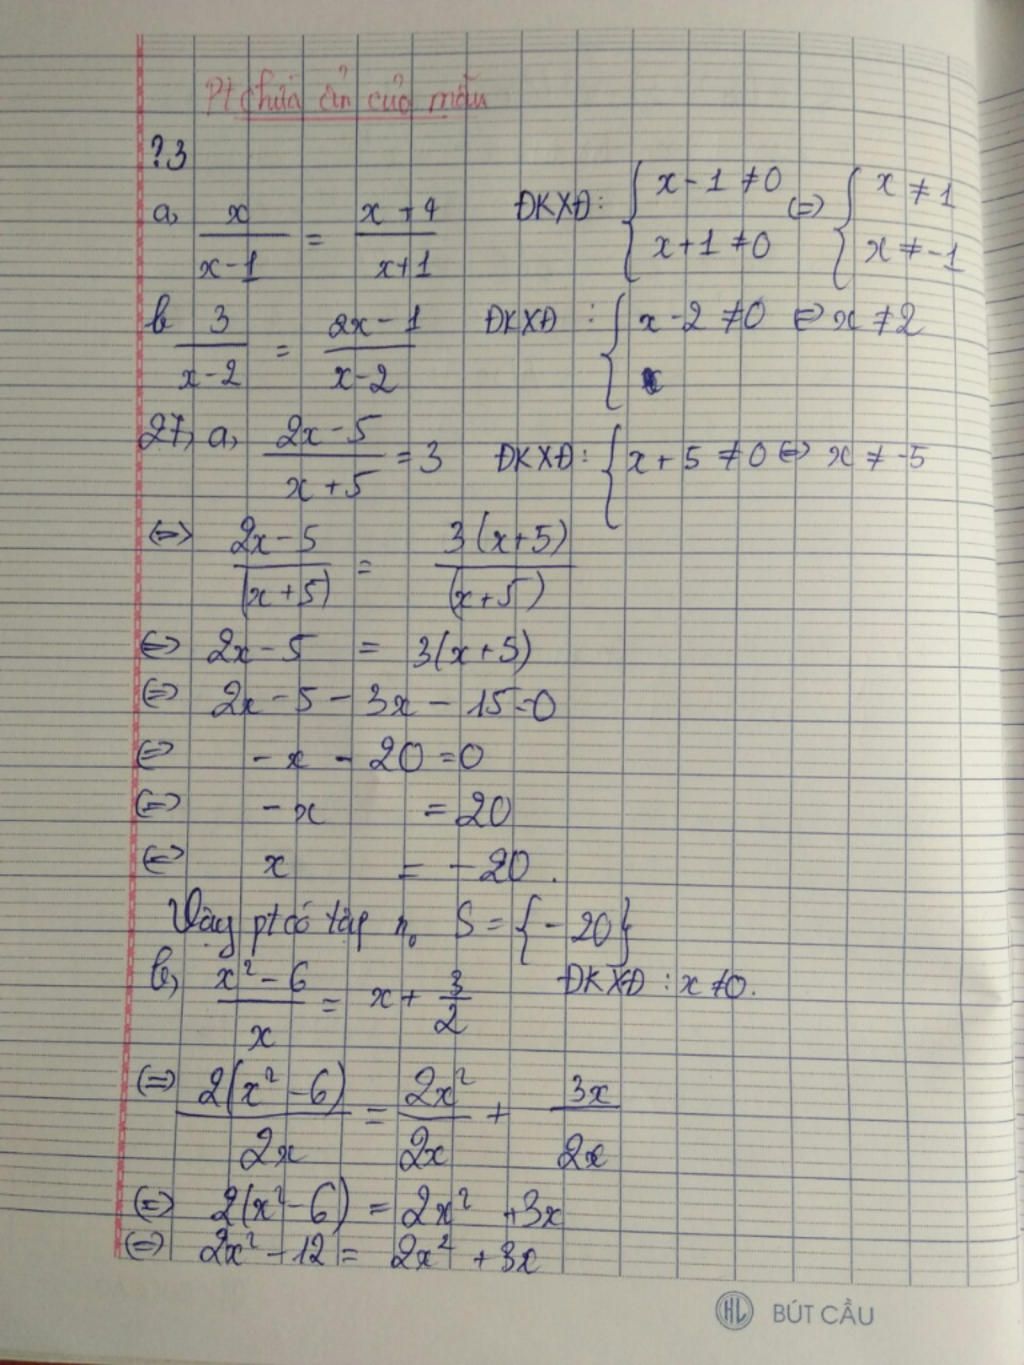 Pt chứa ẩn của mẫu
?3
a, x/(x-1) = (x+4)/(x+1) ĐKXĐ: { x-1 ≠0 ; x+1 ≠0 (=) { x ≠ 1 ; x ≠ -1
b 3/(x-2) = (2x-1)/(x-2) ĐKXĐ : { x-2 ≠0 (=) x ≠2
27, a, (2x-5)/(x+5) = 3 ĐKXĐ: { x+5 ≠0 (=) x ≠ -5
(=) (2x-5)/(x+5) = 3(x+5)/(x+5)
(=) 2x-5 = 3(x+5)
(=) 2x-5-3x-15=0
(=) -x-20=0
(=) -x = 20
(=) x = -20.
Vậy pt có tập n0 S={-20}
b, (x²-6)/x = x+ 3/2 ĐKXĐ : x ≠0.
(=) 2(x²-6)/2x = 2x²/2x + 3x/2x
(=) 2(x²-6) = 2x² +3x
(=) 2x²-12 = 2x² +3x
HL BÚT CẦU